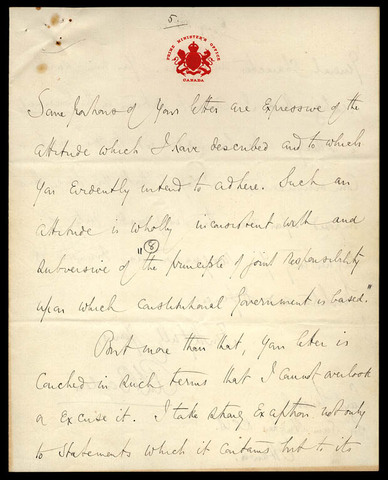 5.
PRIME MINISTER'S OFFICE
CANADA
Some portions of Your letter are Expressive of the
attitude which I have described and to which
You Evidently intend to adhere. Such an
attitude is wholly inconsistent with and
subversive of "the principle of joint responsibility
8
upon which constitutional Government is based."
But more than that, Your letter is
Couched in such terms that I cannot overlook
or Excuse it. I take strong Exception not only
to statements which it contains but to its